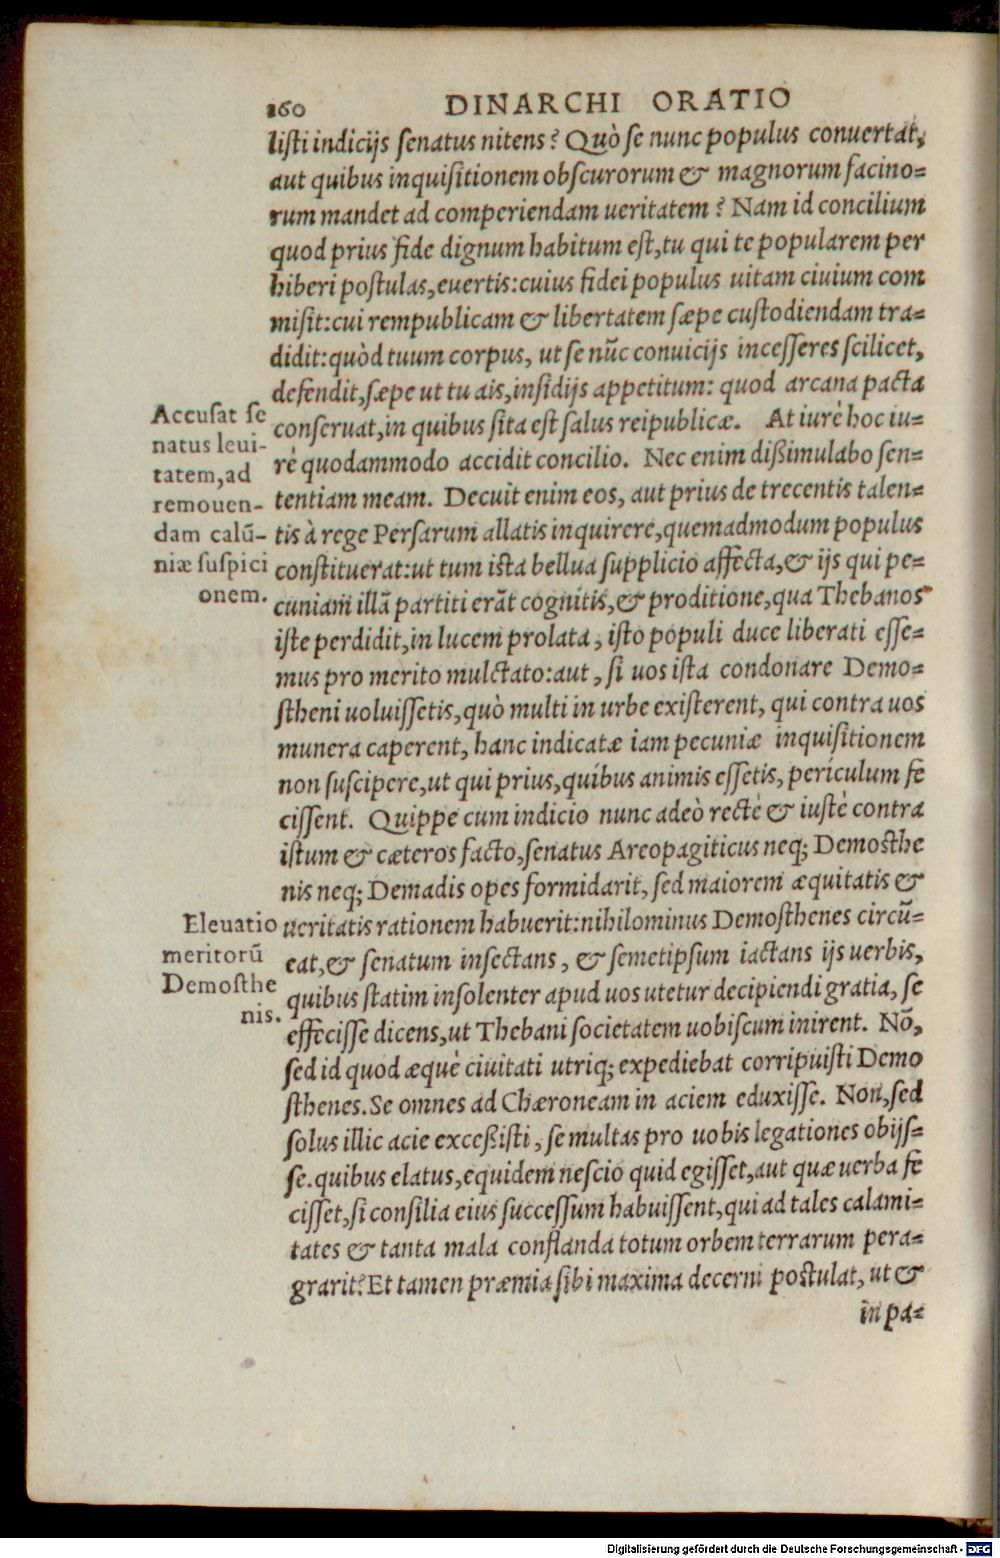 160 DINARCHI ORATIO
listi indicijs senatus nitens? Quò se nunc populus conuertat,
aut quibus inquisitionem obscurorum & magnorum facino=
rum mandet ad comperiendam ueritatem? Nam id concilium
quod prius fide dignum habitum est, tu qui te popularem per
hiberi postulas, euertis: cuius fidei populus uitam ciuium com
misit: cui rempublicam & libertatem sæpe custodiendam tra=
didit: quòd tuum corpus, ut se nũc conuicijs incesseres scilicet,
defendit, sæpe ut tu ais, insidijs appetitum: quod arcana pacta
conseruat, in quibus sita est salus reipublicæ. At iurè hoc iu=
rè quodammodo accidit concilio. Nec enim dißimulabo sen=
tentiam meam. Decuit enim eos, aut prius de trecentis talen=
tis à rege Persarum allatis inquirere, quemadmodum populus
constituerat: ut tum ista bellua supplicio affecta, & ijs qui pe=
cuniam illã partiti erãt cognitis, & proditione, qua Thebanos
iste perdidit, in lucem prolata, isto populi duce liberati esse=
mus pro merito mulctato: aut, si uos ista condonare Demo=
stheni uoluissetis, quò multi in urbe existerent, qui contra uos
munera caperent, hanc indicatæ iam pecuniæ inquisitionem
non suscipere, ut qui prius, quibus animis essetis, periculum fe
cissent. Quippe cum indicio nunc adeò rectè & iustè contra
istum & cæteros facto, senatus Areopagiticus neq; Demosthe
nis neq; Demadis opes formidarit, sed maiorem æquitatis &
ueritatis rationem habuerit: nihilominus Demosthenes circũ=
eat, & senatum insectans, & semetipsum iactans ijs uerbis,
quibus statim insolenter apud uos utetur decipiendi gratia, se
effecisse dicens, ut Thebani societatem uobiscum inirent. Nõ,
sed id quod æquè ciuitati utriq; expediebat corripuisti Demo
sthenes. Se omnes ad Chæroneam in aciem eduxisse. Non, sed
solus illic acie exceßisti, se multas pro uobis legationes obijs=
se. quibus elatus, equidem nescio quid egisset, aut quæ uerba fe
cisset, si consilia eius successum habuissent, qui ad tales calami=
tates & tanta mala conflanda totum orbem terrarum pera=
grarit? Et tamen præmia sibi maxima decerni postulat, ut &
in pa=
Accusat se
natus leui-
tatem, ad
remouen-
dam calũ-
niæ suspici
onem.
Eleuatio
meritorũ
Demosthe
nis.
Digitalisierung gefördert durch die Deutsche Forschungsgemeinschaft - DFG